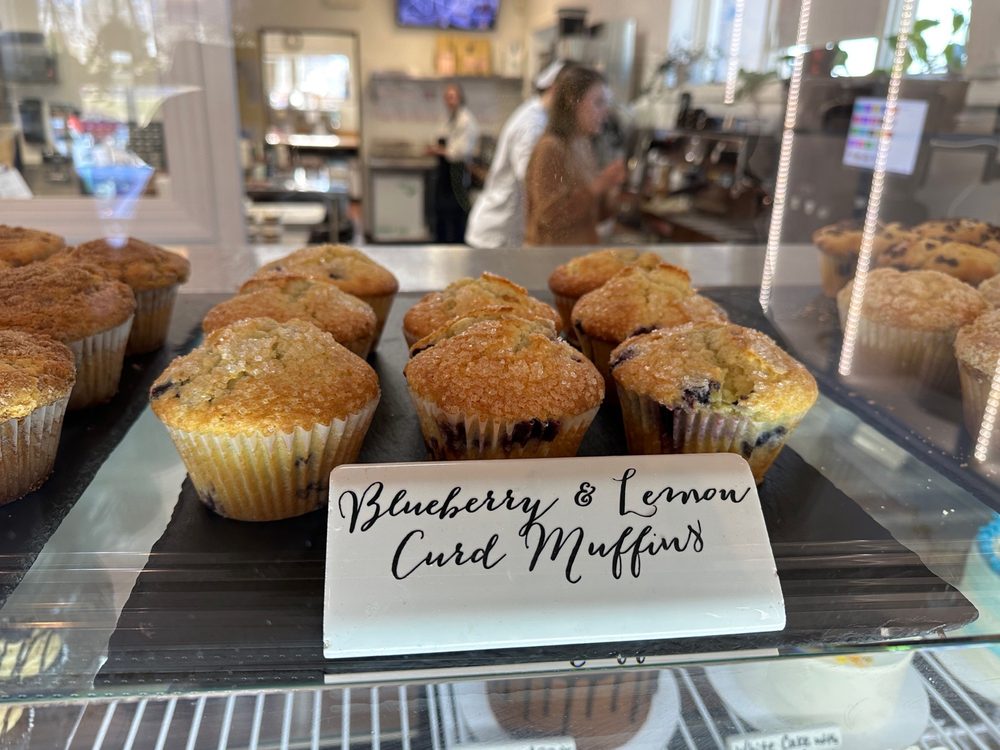 Blueberry & Lemon
Curd Muffins
White Cake with